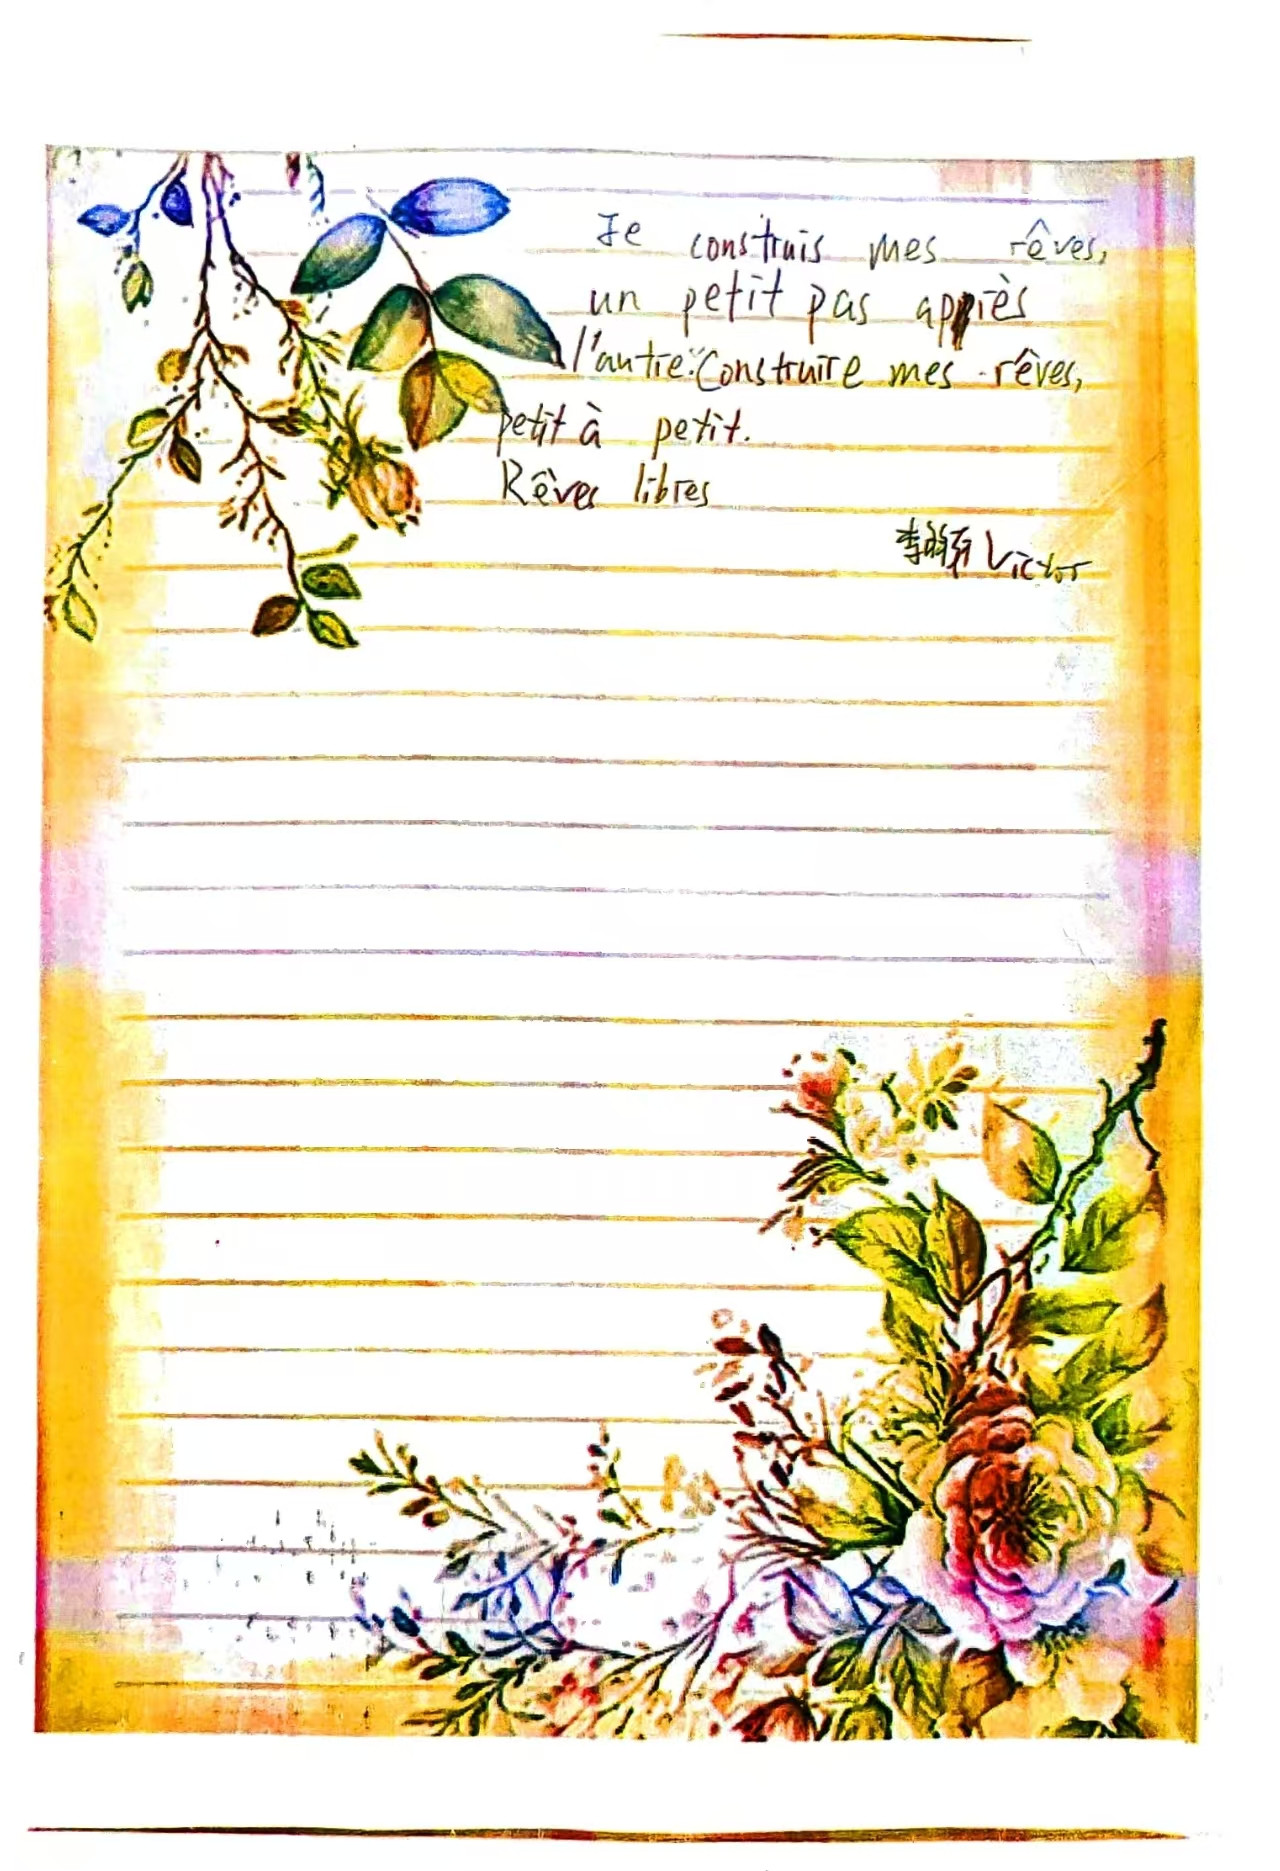 Je construis mes rêves,
un petit pas après
l'autre. Construire mes rêves,
petit à petit.
Rêves libres
李 Victor